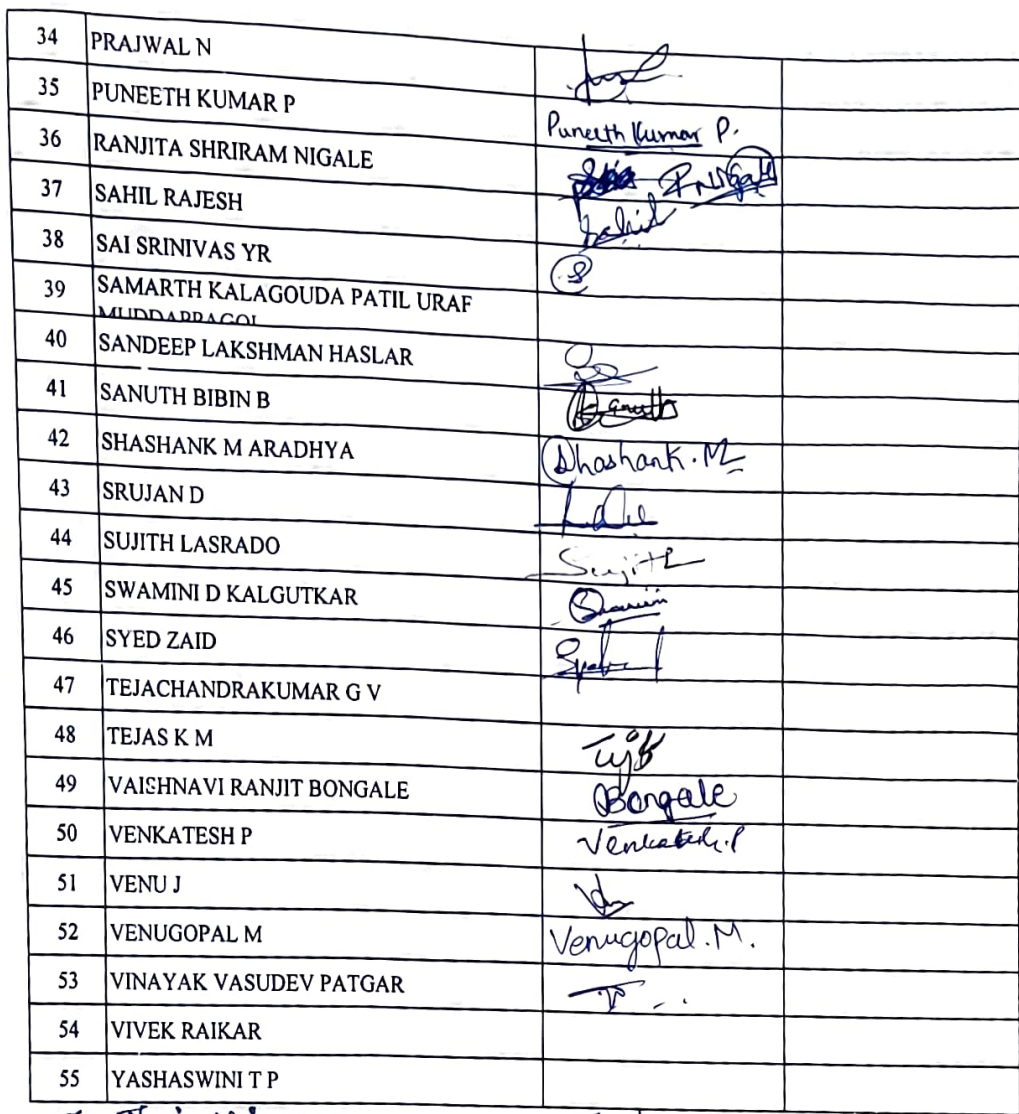 34 PRAJWAL N
35 PUNEETH KUMAR P Puneeth Kumar P.
36 RANJITA SHRIRAM NIGALE RNigale
37 SAHIL RAJESH Sahil
38 SAI SRINIVAS YR S
39 SAMARTH KALAGOUDA PATIL URAF
MUDDAPPAGOL
40 SANDEEP LAKSHMAN HASLAR
41 SANUTH BIBIN B Sanuth
42 SHASHANK M ARADHYA Shashank.M
43 SRUJAN D
44 SUJITH LASRADO Sujith
45 SWAMINI D KALGUTKAR Swamini
46 SYED ZAID
47 TEJACHANDRAKUMAR G V
48 TEJAS K M
49 VAISHNAVI RANJIT BONGALE Bongale
50 VENKATESH P Venkatesh.P
51 VENU J
52 VENUGOPAL M Venugopal.M.
53 VINAYAK VASUDEV PATGAR
54 VIVEK RAIKAR
55 YASHASWINI T P